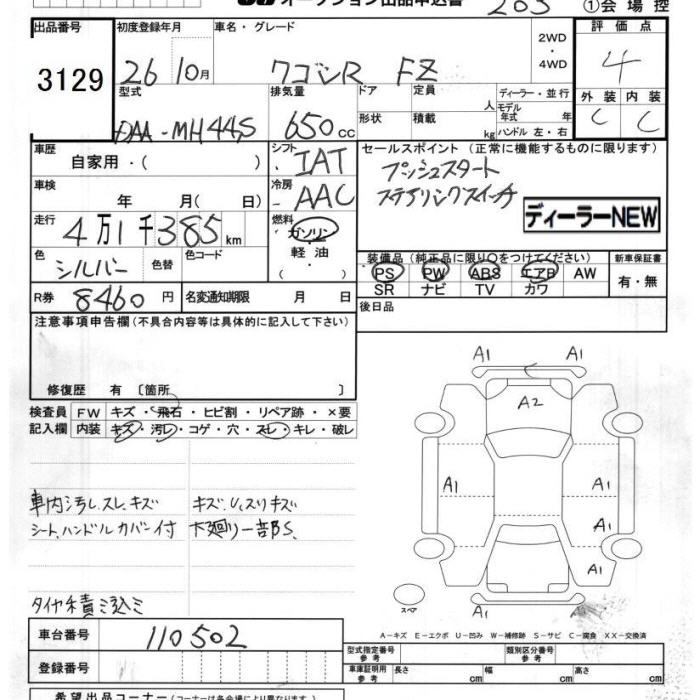 オークション出品申込書 203 ①会場控
出品番号 初度登録年月 車名・グレード 評価点
3129 26 10月 ワゴンR FZ 2WD・4WD 4
型式 排気量 ドア 定員 人 ディーラー・並行 外装 内装
DAA-MH44S 650cc 形状 積載 kg モデル年式 年 ハンドル 左・右 C C
車歴 自家用・( ) シフト IAT セールスポイント (正常に機能するものに限ります)
車検 年 月( 日) 冷房 AAC プッシュスタート
ステアリングスイッチ
走行 4万1千385km 燃料 ガソリン・軽油・ ディーラーNEW
色 シルバー 色替 色コード 装備品(純正品に限り○をつけてください) 新車保証書
PS PW ABS エアB AW 有・無
R券 8460円 名変通知期限 月 日 SR ナビ TV カワ
注意事項申告欄(不具合内容等は具体的に記入して下さい) 後日品
修復歴 有 〔箇所 〕
検査員 FW キズ・飛石・ヒビ割・リペア跡・×要
記入欄 内装 キズ・汚レ・コゲ・穴・スレ・キレ・破レ
A1 A1
A2
A1 A1
A1
A1
A1 A1
車内汚レ、スレ、キズ キズ、U、スリキズ
シート、ハンドルカバー付 下廻り一部S、
タイヤ積ミ込ミ
スペア
A-キズ E-エクボ U-凹み W-補修跡 S-サビ C-腐食 XX-交換済
車台番号 110502 型式指定番号 参考 類別区分番号 参考
登録番号 車庫証明用 参考 長さ cm 幅 cm 高さ cm
希望出品コーナー(コーナーは各会場により異なります)